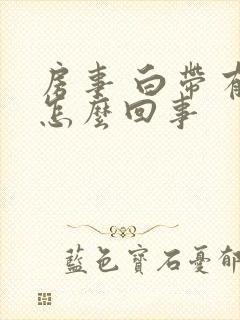 房事白帶有
怎麼回事
藍色寶石憂郁